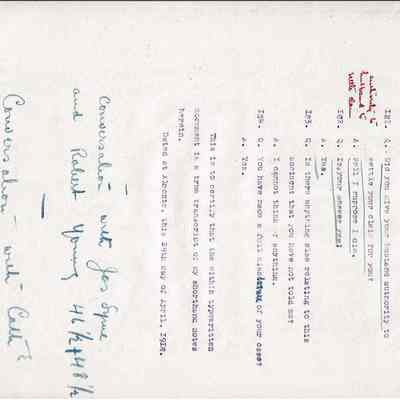 authority to
husband to
settle
191. Q. Did you give your husband authority to
settle your claim for you?
A. Well I suppose I did.
192. Q. Is your answer yes?
A. Yes.
193. Q. Is there anything else relating to this
accident that you have not told me?
A. I cannot think of anything.
194. Q. You have made a full disclosure of your case?
A. Yes.
This is to certify that the within typewritten
document is a true transcript of my shorthand notes
herein.
Dated at this day of April,
Conversation with Jas Syme
and Robert Young 46½ + 48½
Conversation with